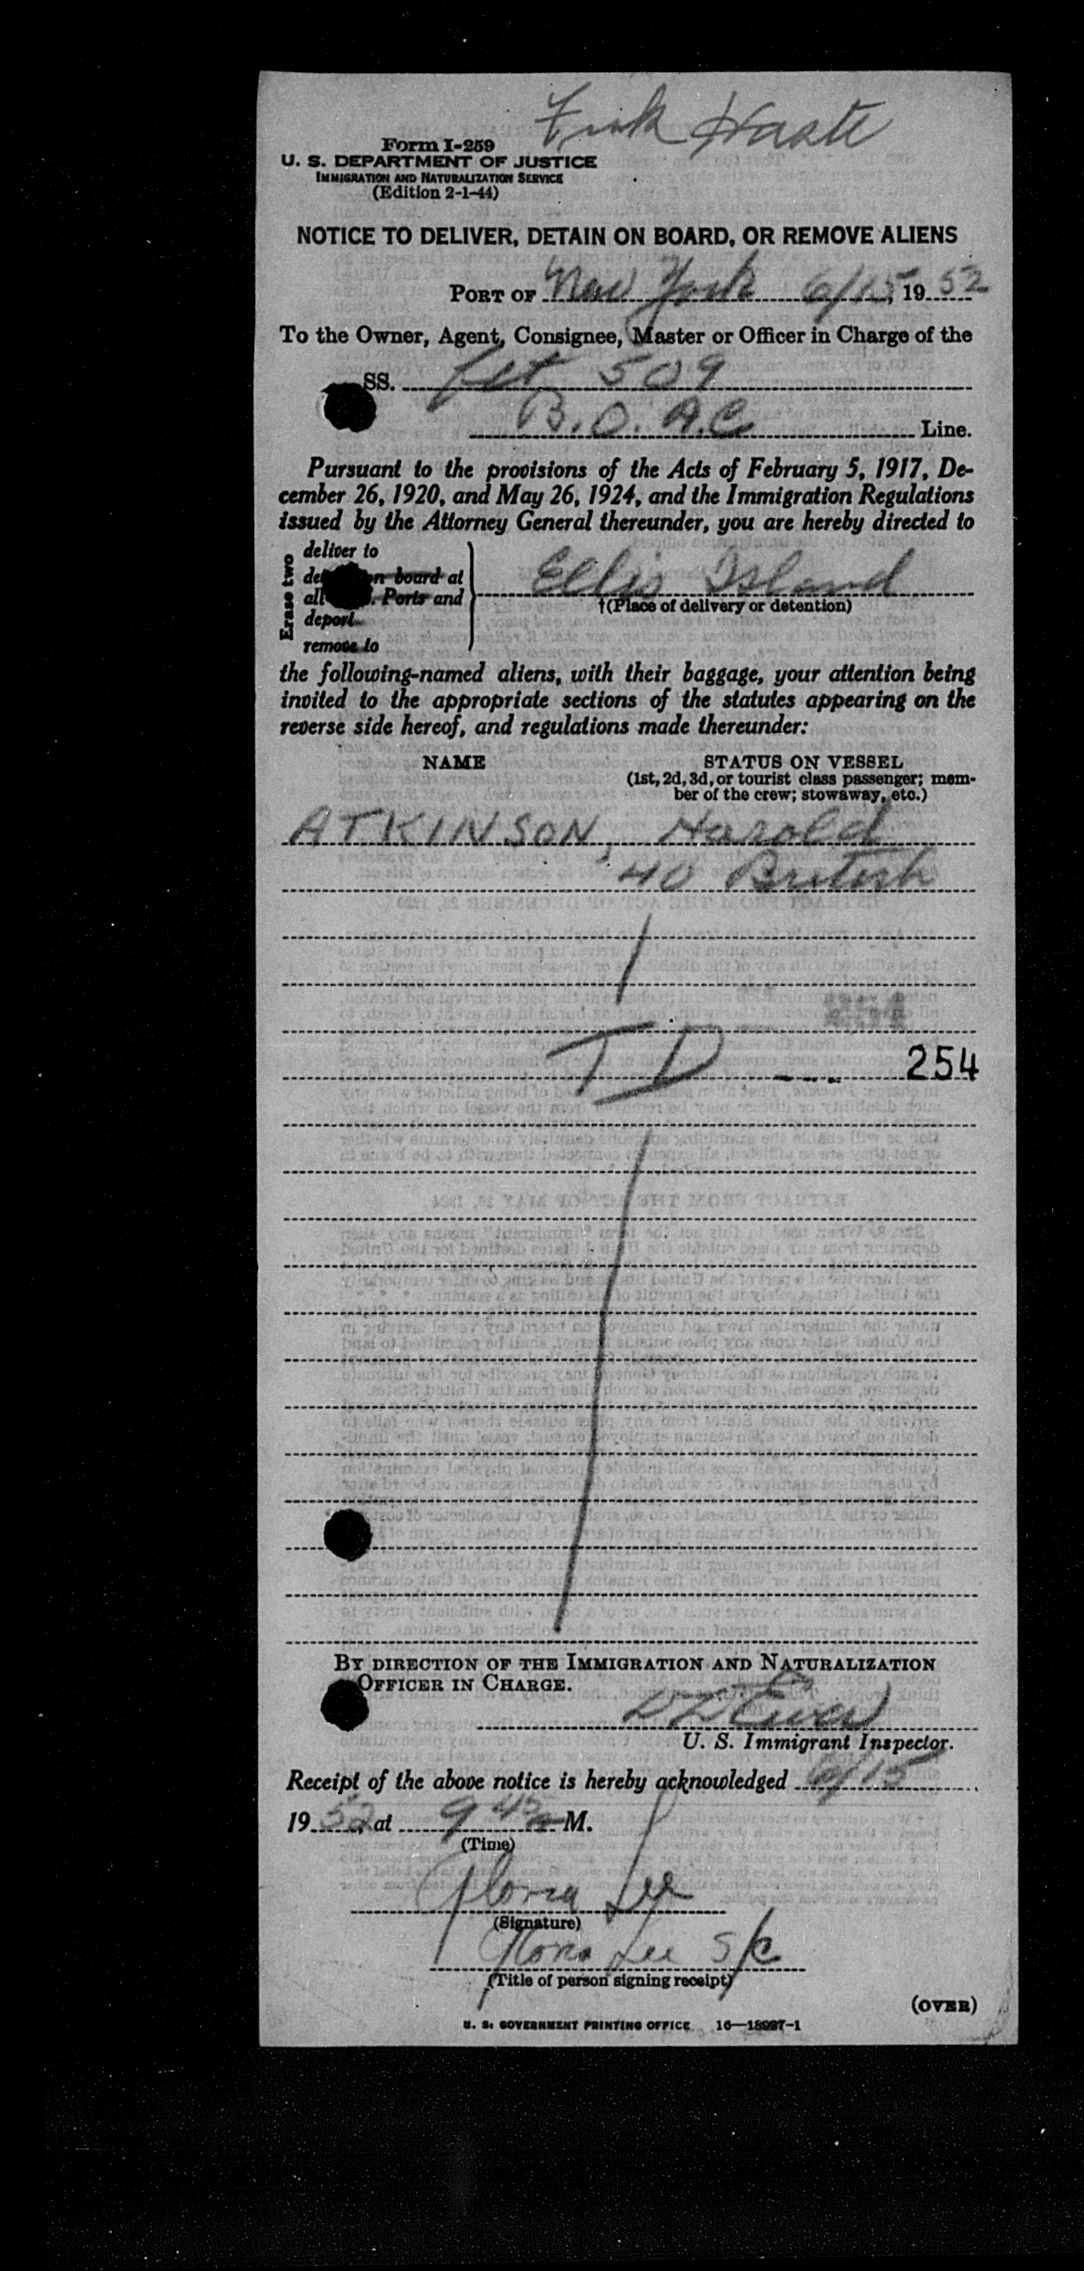 Form I-259
U. S. DEPARTMENT OF JUSTICE
IMMIGRATION AND NATURALIZATION SERVICE
(Edition 2-1-44)
NOTICE TO DELIVER, DETAIN ON BOARD, OR REMOVE ALIENS
PORT OF New York 6/15, 1952
To the Owner, Agent, Consignee, Master or Officer in Charge of the
SS. flt 509
B.O.A.C Line.
Pursuant to the provisions of the Acts of February 5, 1917, De-
cember 26, 1920, and May 26, 1924, and the Immigration Regulations
issued by the Attorney General thereunder, you are hereby directed to
Erase two
deliver to
on board at
all Ports and
deport
remove to
Ellis Island
†(Place of delivery or detention)
the following-named aliens, with their baggage, your attention being
invited to the appropriate sections of the statutes appearing on the
reverse side hereof, and regulations made thereunder:
NAME STATUS ON VESSEL
(1st, 2d, 3d, or tourist class passenger; mem-
ber of the crew; stowaway, etc.)
ATKINSON, Harold
40 British
TD 254
BY DIRECTION OF THE IMMIGRATION AND NATURALIZATION
OFFICER IN CHARGE.
U. S. Immigrant Inspector.
Receipt of the above notice is hereby acknowledged 6/15
1952 at 9 45 M.
(Time)
Gloria Lee
(Signature)
Lee S/C
(Title of person signing receipt)
(OVER)
U. S. GOVERNMENT PRINTING OFFICE 16—18997-1